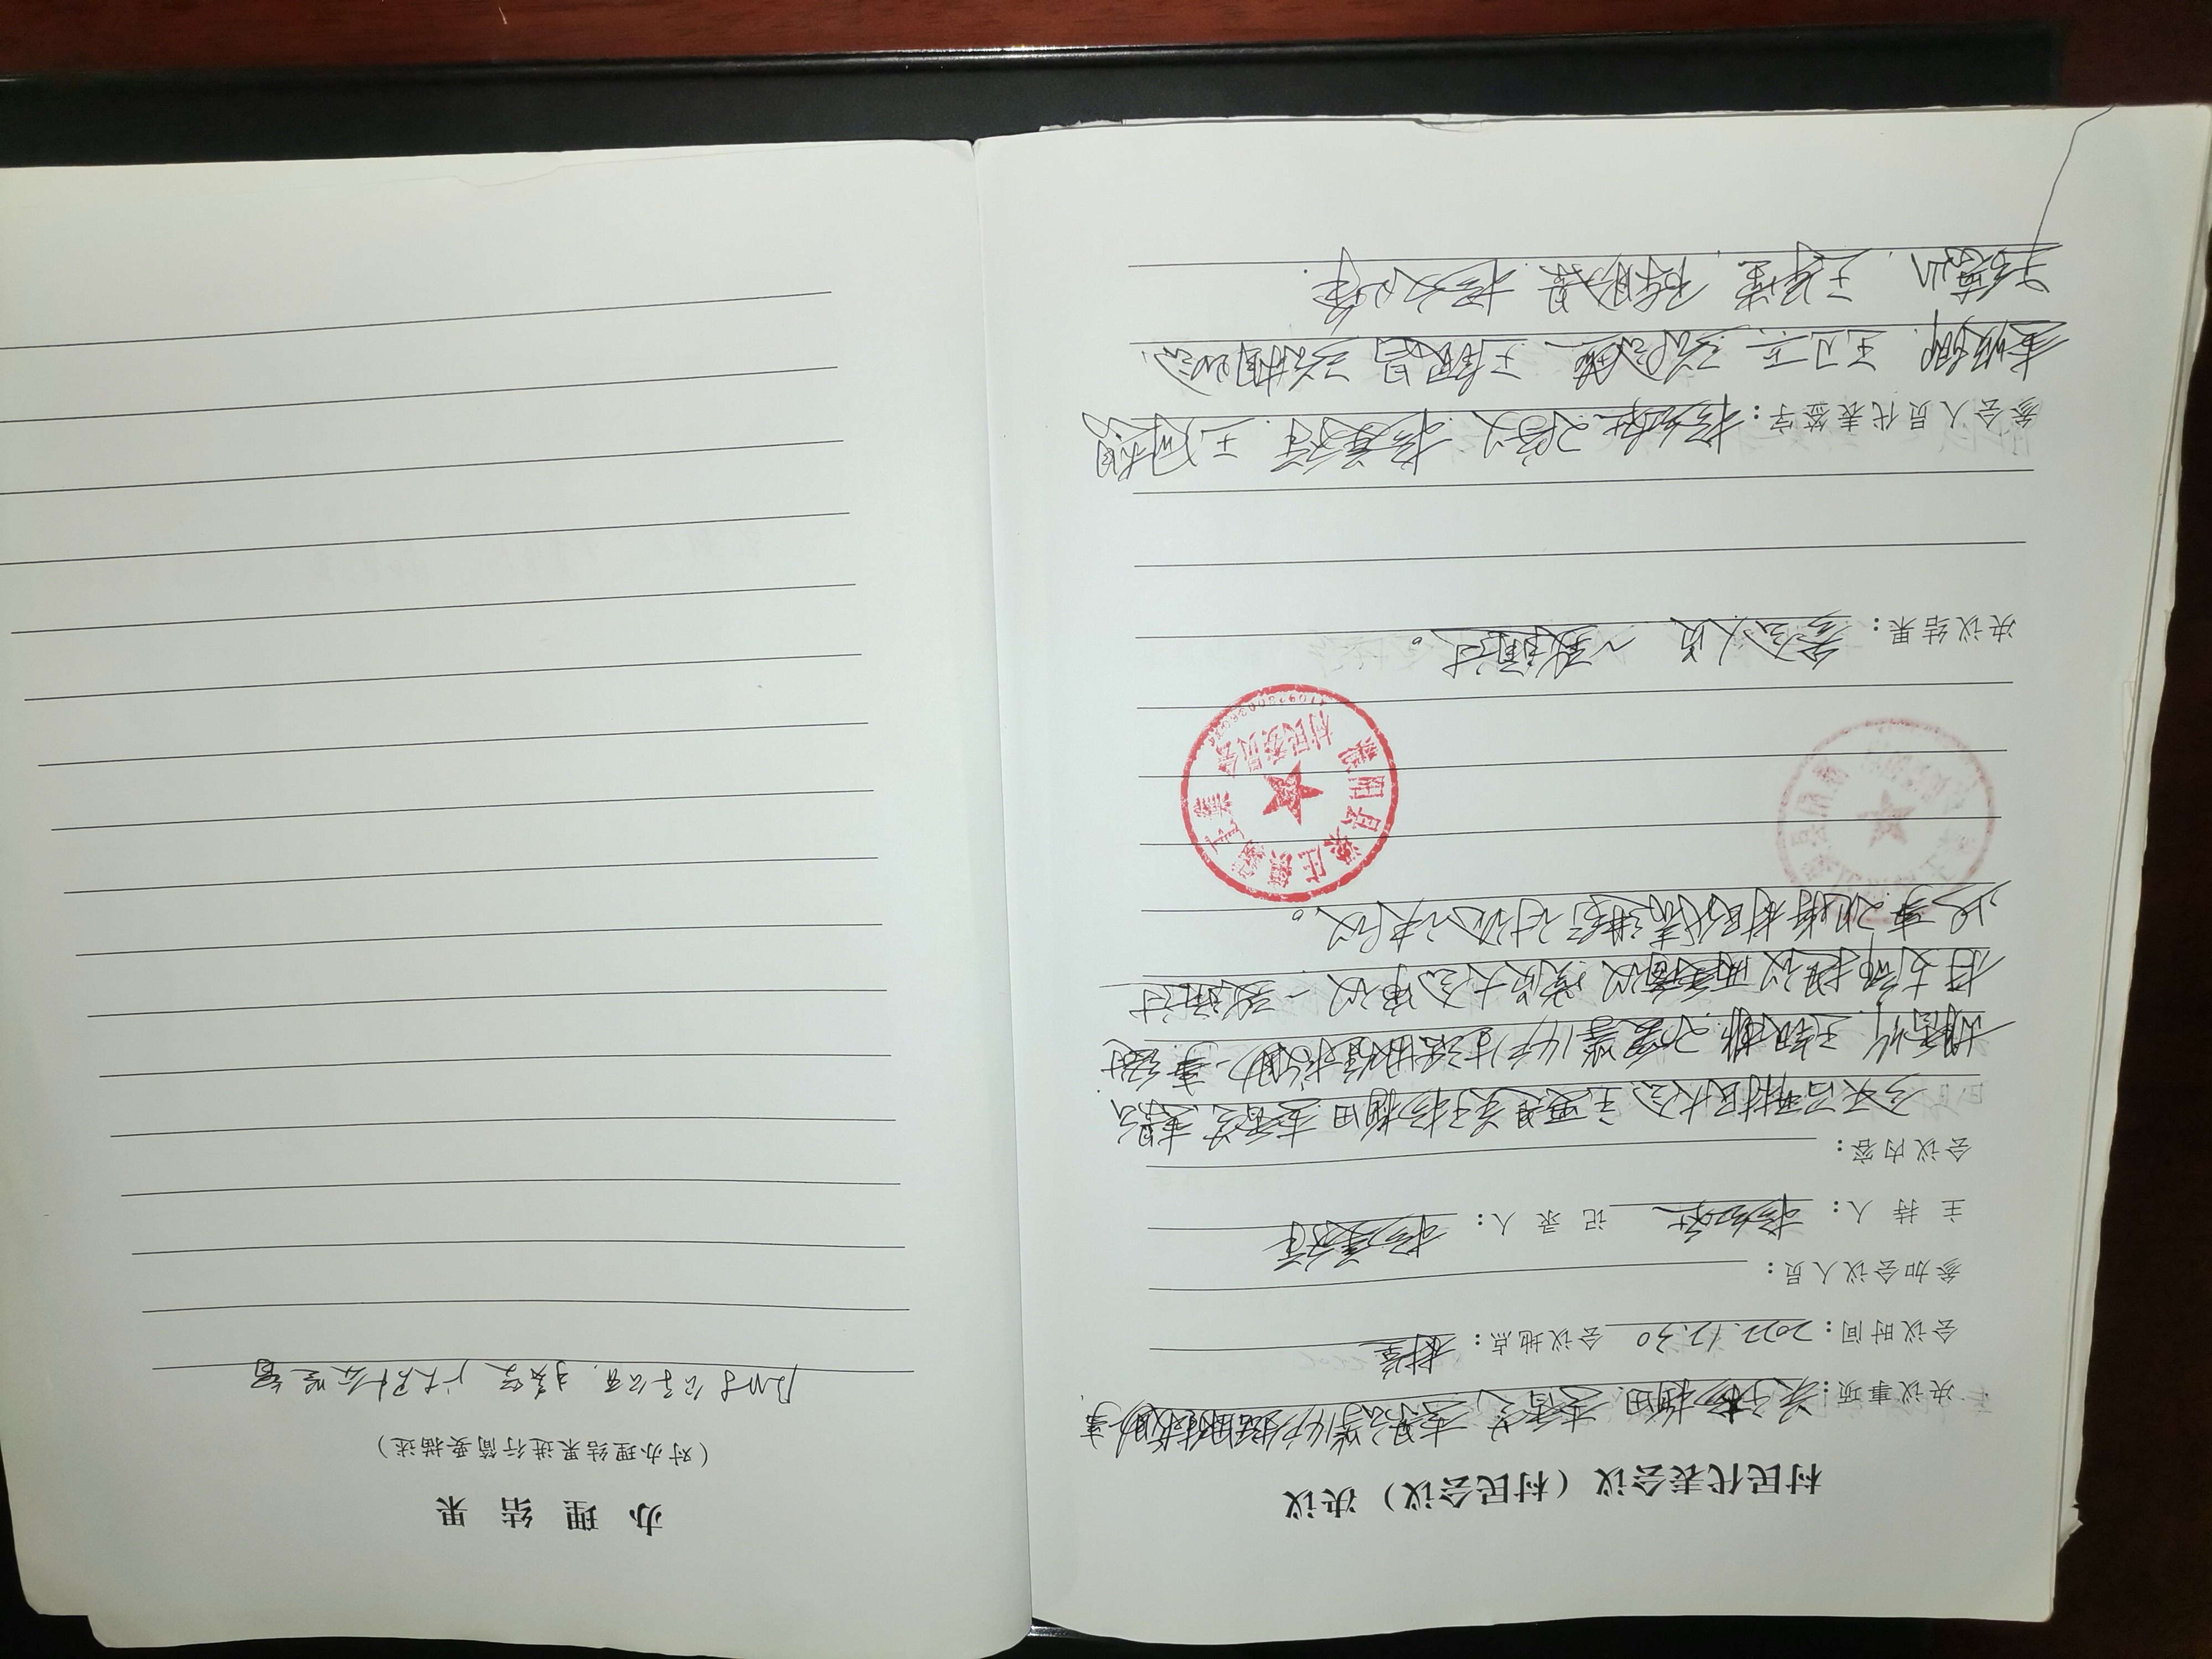 村民代表会议（村民会议）决议
决议事项：关于杨梅田、李香芝、李景云等14户生活困难救助一事.
会议时间：2022.12.30 会议地点：村室
参加会议人员：
主持人：杨红社 记录人：杨美祥
会议内容：
今天召开村民大会、主要是关于杨梅田、李香芝、李景云、
胡香竹、王银 等14户生活困难救助一事.经过
村支部提议 两委商议、党员大会审议 一致通过
此事.现将村民代表进行讨论决议。
县梁庄镇 王集
村民委员会
决议结果：参会人员 一致通过。
参会人员代表签字：杨红社、 守义、杨美祥、王同想
李顺卿、王卫兵、 王银昌
王德山、王军堂、陈 景、杨文峰.
办理结果
（对办理结果进行简要描述）
及时公示公开，接受广大群众监督